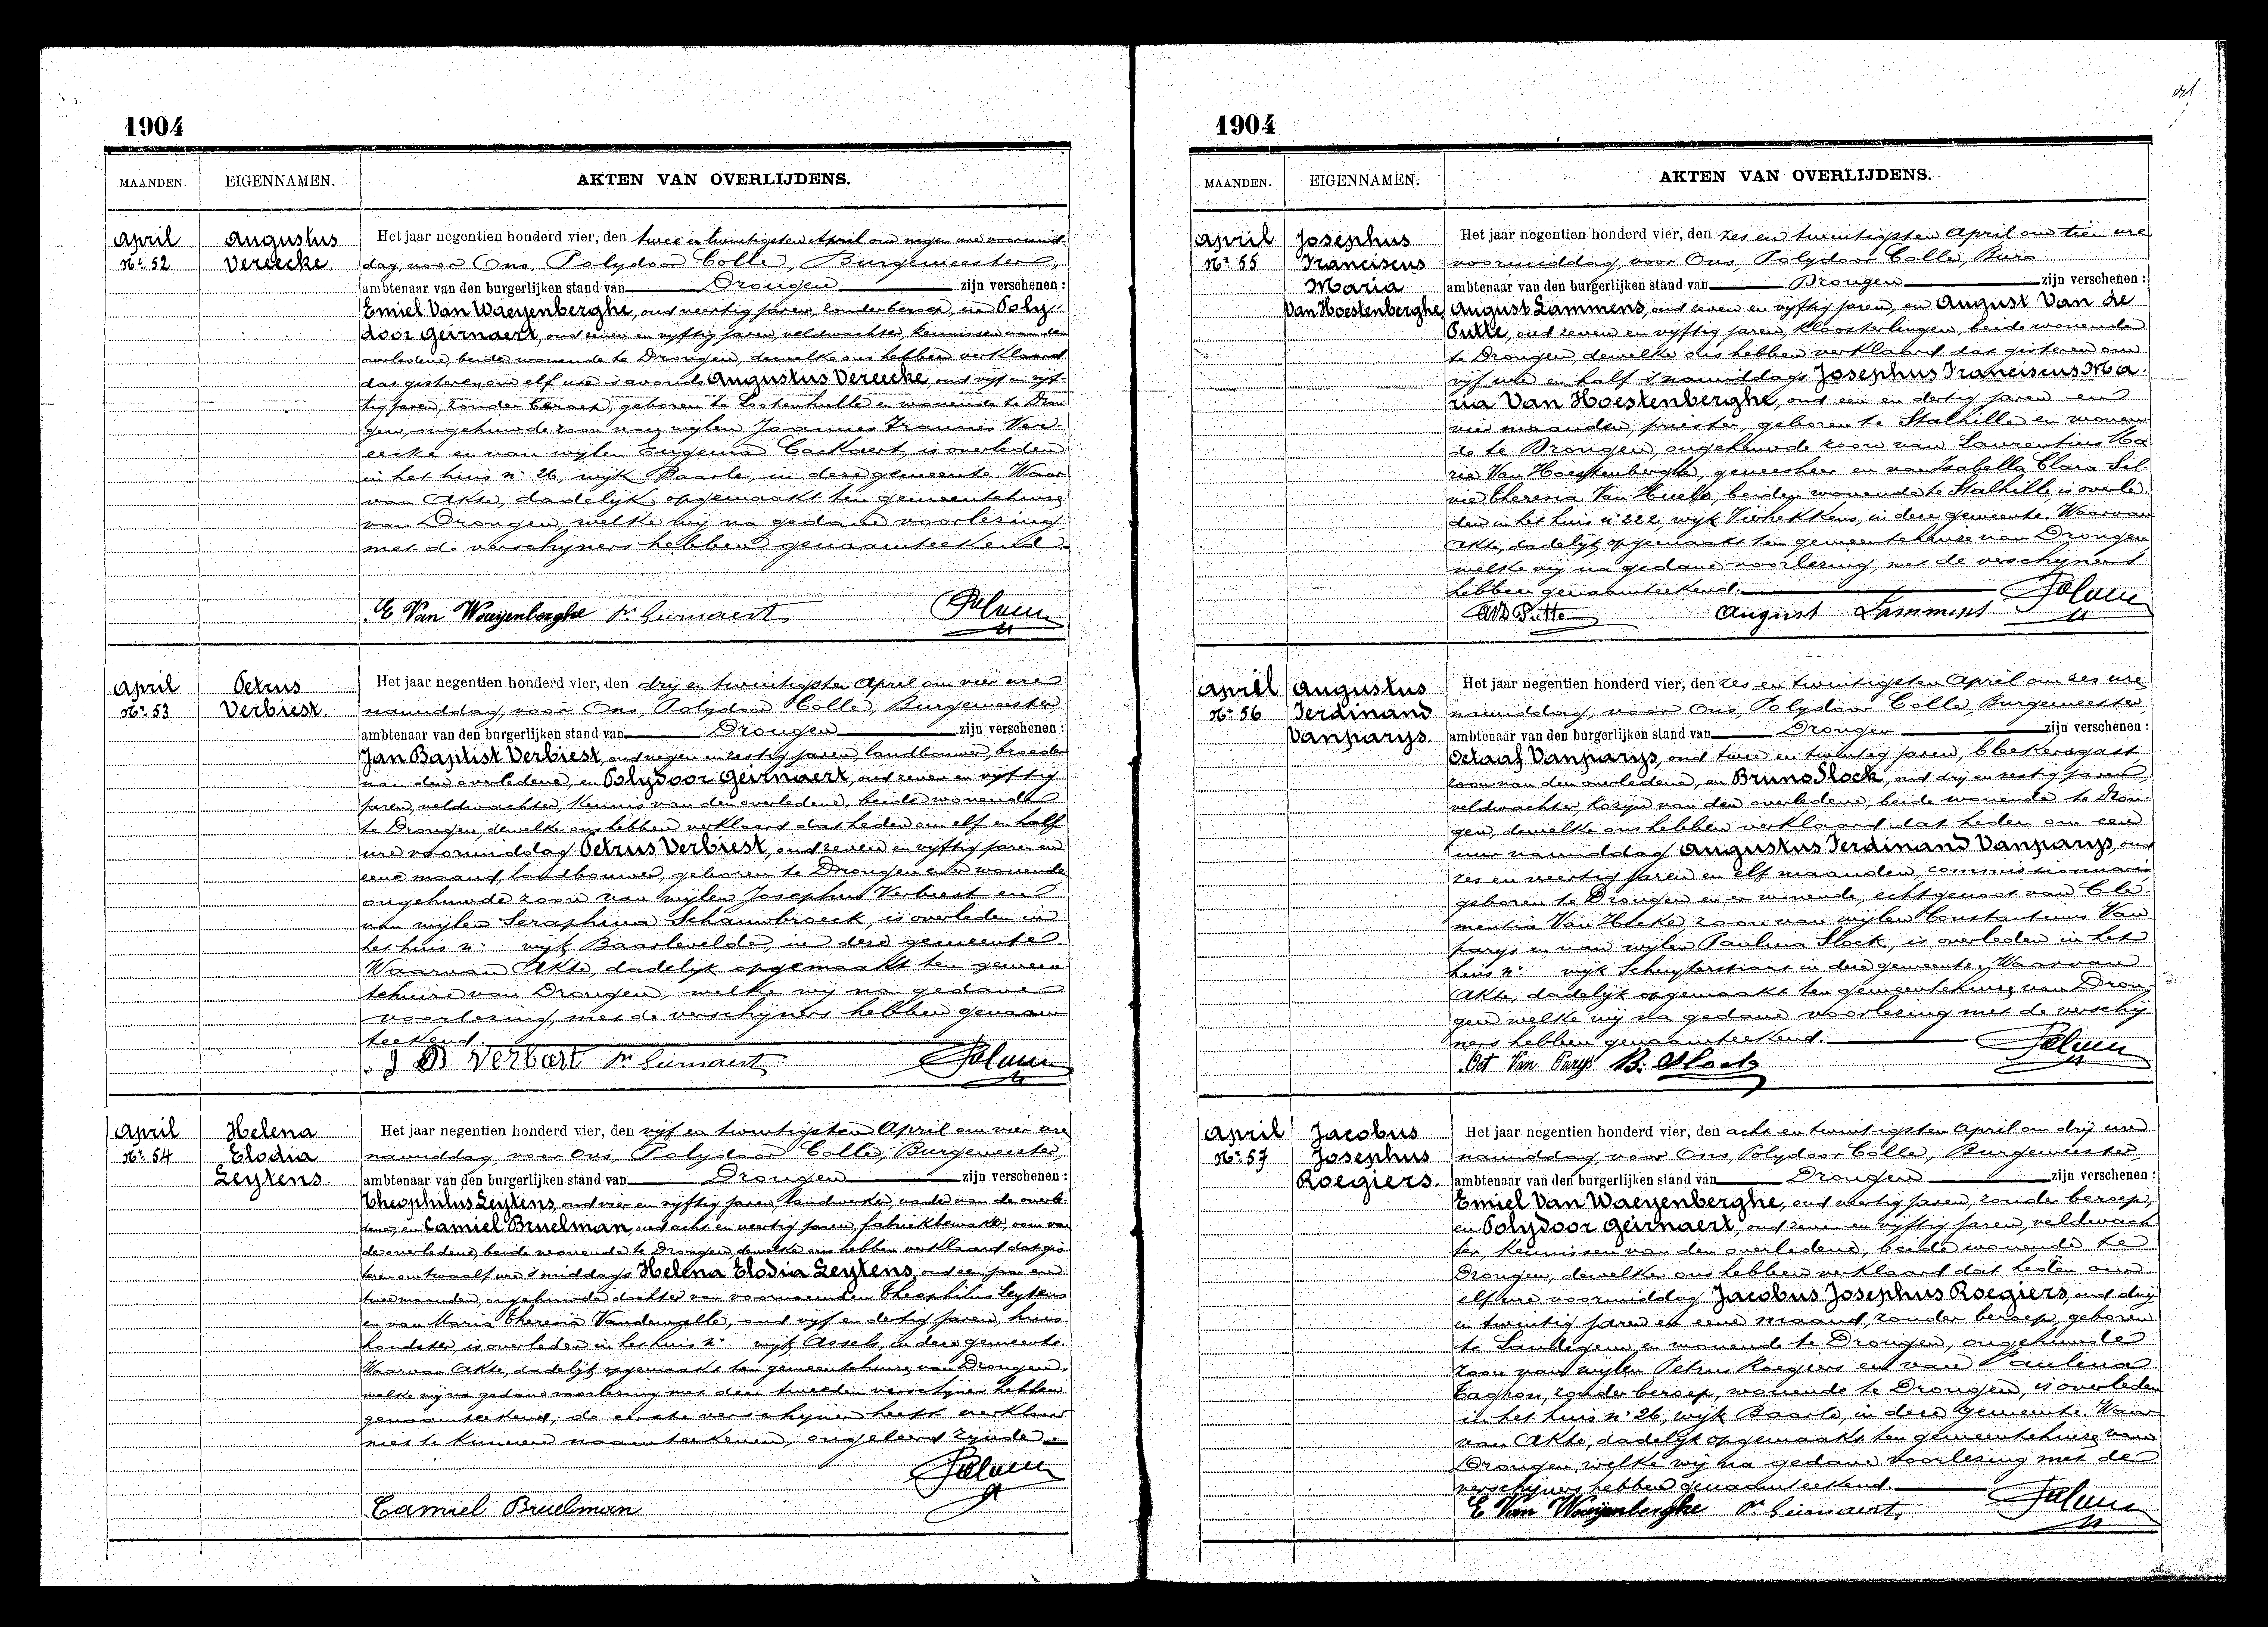 1904
MAANDEN. EIGENNAMEN. AKTEN VAN OVERLIJDENS.
April
Nr. 52
Augustus
Vereecke.
Het jaar negentien honderd vier, den twee en twintigsten April om negen ure voormid-
dag, voor Ons, Polydoor Colle, Burgemeester,
ambtenaar van den burgerlijken stand van Drongen zijn verschenen :
Emiel Van Waeyenberghe, oud veertig jaren, zonder beroep, en Poly-
door Geirnaert, oud zeven en vijftig jaren, veldwachter, kennissen van den
overledene, beide wonende te Drongen, dewelke ons hebben verklaard
dat gisteren om elf ure 's avonds Augustus Vereecke, oud vijf en vijf-
tig jaren, zonder beroep, geboren te Lootenhulle en wonende te Dron
gen, ongehuwde zoon van wijlen Joannes Francies Ver-
eecke en van wijlen Eugenia Caekaert, is overleden
in het huis nr 26, wijk Baarle, in deze gemeente. Waar
van Akte, dadelijk opgemaakt ten gemeentehuize
van Drongen, welke wij na gedane voorlezing
met de verschijners hebben genaamteekend.
E Van Waeyenberghe Pr Geirnaert
April
Nr. 53
Petrus
Verbiest.
Het jaar negentien honderd vier, den drij en twintigsten April om vier ure
namiddag, voor Ons, Polydoor Colle, Burgemeester
ambtenaar van den burgerlijken stand van Drongen zijn verschenen :
Jan Baptist Verbiest, oud negen en zestig jaren, landbouwer, broeder
van den overledene, en Polydoor Geirnaert, oud zeven en vijftig
jaren, veldwachter, kennis van den overledene, beide wonende
te Drongen, dewelke ons hebben verklaard dat heden om elf en half
ure voormiddag Petrus Verbiest, oud zeven en vijftig jaren en
eene maand, landbouwer, geboren te Drongen en er wonende
ongehuwde zoon van wijlen Josephus Verbiest en
van wijlen Seraphina Schaumbroeck, is overleden in
het huis nr wijk Baarlevelde, in deze gemeente.
Waarvan Akte, dadelijk opgemaakt ten gemeen
tehuize van Drongen, welke wij na gedane
voorlezing, met de verschijners hebben genaam
teekend.
J B Verbast Pr Geirnaert
April
Nr. 54
Helena
Elodia
Leytens.
Het jaar negentien honderd vier, den vijf en twintigsten April om vier ure
namiddag, voor Ons, Polydoor Colle, Burgemeester,
ambtenaar van den burgerlijken stand van Drongen zijn verschenen :
Theophilus Leytens, oud vier en vijftig jaren, landwerker, vader van de overle-
dene, en Camiel Bruelman, oud acht en veertig jaren, fabriekbewerker, oom van
de overledene, beide wonende te Drongen, dewelke ons hebben verklaard dat gis
teren om twaalf ure 's middags Helena Elodia Leytens, oud een jaar en
twee maanden, ongehuwde dochter van voornoemden Theophilus Leytens
en van Maria Theresia Vandewalle, oud vijf en dertig jaren, huis
houdster, is overleden in het huis nr wijk Assels, in deze gemeente.
Waarvan Akte, dadelijk opgemaakt ten gemeentehuize van Drongen,
welke wij na gedane voorlezing met den tweeden verschijner hebben
genaamteekend, de eerste verschijner heeft verklaard
niet te kunnen naamteekenen, ongeleerd zijnde.
Camiel Bruelman
1904
MAANDEN. EIGENNAMEN. AKTEN VAN OVERLIJDENS.
April
Nr. 55
Josephus
Franciscus
Maria
Van Hoestenberghe
Het jaar negentien honderd vier, den zes en twintigsten April om tien ure
voormiddag, voor Ons, Polydoor Colle, Burg
ambtenaar van den burgerlijken stand van Drongen zijn verschenen :
August Lammens, oud zeven en vijftig jaren, en August Van de
Putte, oud zeven en vijftig jaren, kloosterlingen, beide wonende
te Drongen, dewelke ons hebben verklaard dat gisteren om
vijf ure en half 's namiddags Josephus Franciscus Ma-
ria Van Hoestenberghe, oud een en dertig jaren en
vier maanden, priester, geboren te Stalhille en wonen
de te Drongen, ongehuwde zoon van Laurentius Ma
rie Van Hoestenberghe, geneesheer en van Isabella Clara Sil-
vie Theresia Van Huele, beiden wonende te Stalhille, is overle-
den in het huis nr 222, wijk Vierhekkens, in deze gemeente. Waarvan
Akte, dadelijk opgemaakt ten gemeentehuize van Drongen,
welke wij na gedane voorlezing, met de verschijners
hebben genaamteekend.
AVD Putte August Lammens
April
Nr. 56
Augustus
Ferdinand
Vanparys.
Het jaar negentien honderd vier, den zes en twintigsten April om zes ure
namiddag, voor Ons, Polydoor Colle, Burgemeester
ambtenaar van den burgerlijken stand van Drongen zijn verschenen :
Octaaf Vanparys, oud twee en twintig jaren, bleekersgast,
zoon van den overledene, en Bruno Slock, oud drij en zestig jaren
veldwachter, kozijn van den overledene, beide wonende te Dron-
gen, dewelke ons hebben verklaard dat heden om een
uur namiddag Augustus Ferdinand Vanparys, oud
zes en veertig jaren en elf maanden, commissionnaris
geboren te Drongen en er wonende, echtgenoot van Cle-
mentia Van Hecke, zoon van wijlen Constantinus Van
parys en van wijlen Paulina Slock, is overleden in het
huis nr wijk Schuyterstraat in deze gemeente. Waarvan
Akte, dadelijk opgemaakt ten gemeentehuize van Dron-
gen welke wij na gedane voorlezing met de verschij
ners hebben genaamteekend.
Oct Van Parys B. Slock
April
Nr. 57
Jacobus
Josephus
Roegiers.
Het jaar negentien honderd vier, den acht en twintigsten April om drij ure
namiddag, voor Ons, Polydoor Colle, Burgemeester,
ambtenaar van den burgerlijken stand van Drongen zijn verschenen :
Emiel Van Waeyenberghe, oud veertig jaren, zonder beroep,
en Polydoor Geirnaert, oud zeven en vijftig jaren, veldwach-
ter, kennissen van den overledene, beide wonende te
Drongen, dewelke ons hebben verklaard dat heden om
elf ure voormiddag Jacobus Josephus Roegiers, oud drij
en twintig jaren en eene maand, zonder beroep, geboren
te Landegem en wonende te Drongen, ongehuwde
zoon van wijlen Petrus Roegiers en van Paulina
Taghon, zonder beroep, wonende te Drongen, is overleden
in het huis nr 26, wijk Baarle, in deze gemeente. Waar
van Akte, dadelijk opgemaakt ten gemeentehuize van
Drongen, welke wij na gedane voorlezing met de
verschijners hebben genaamteekend.
E Van Waeyenberghe Pr Geirnaert